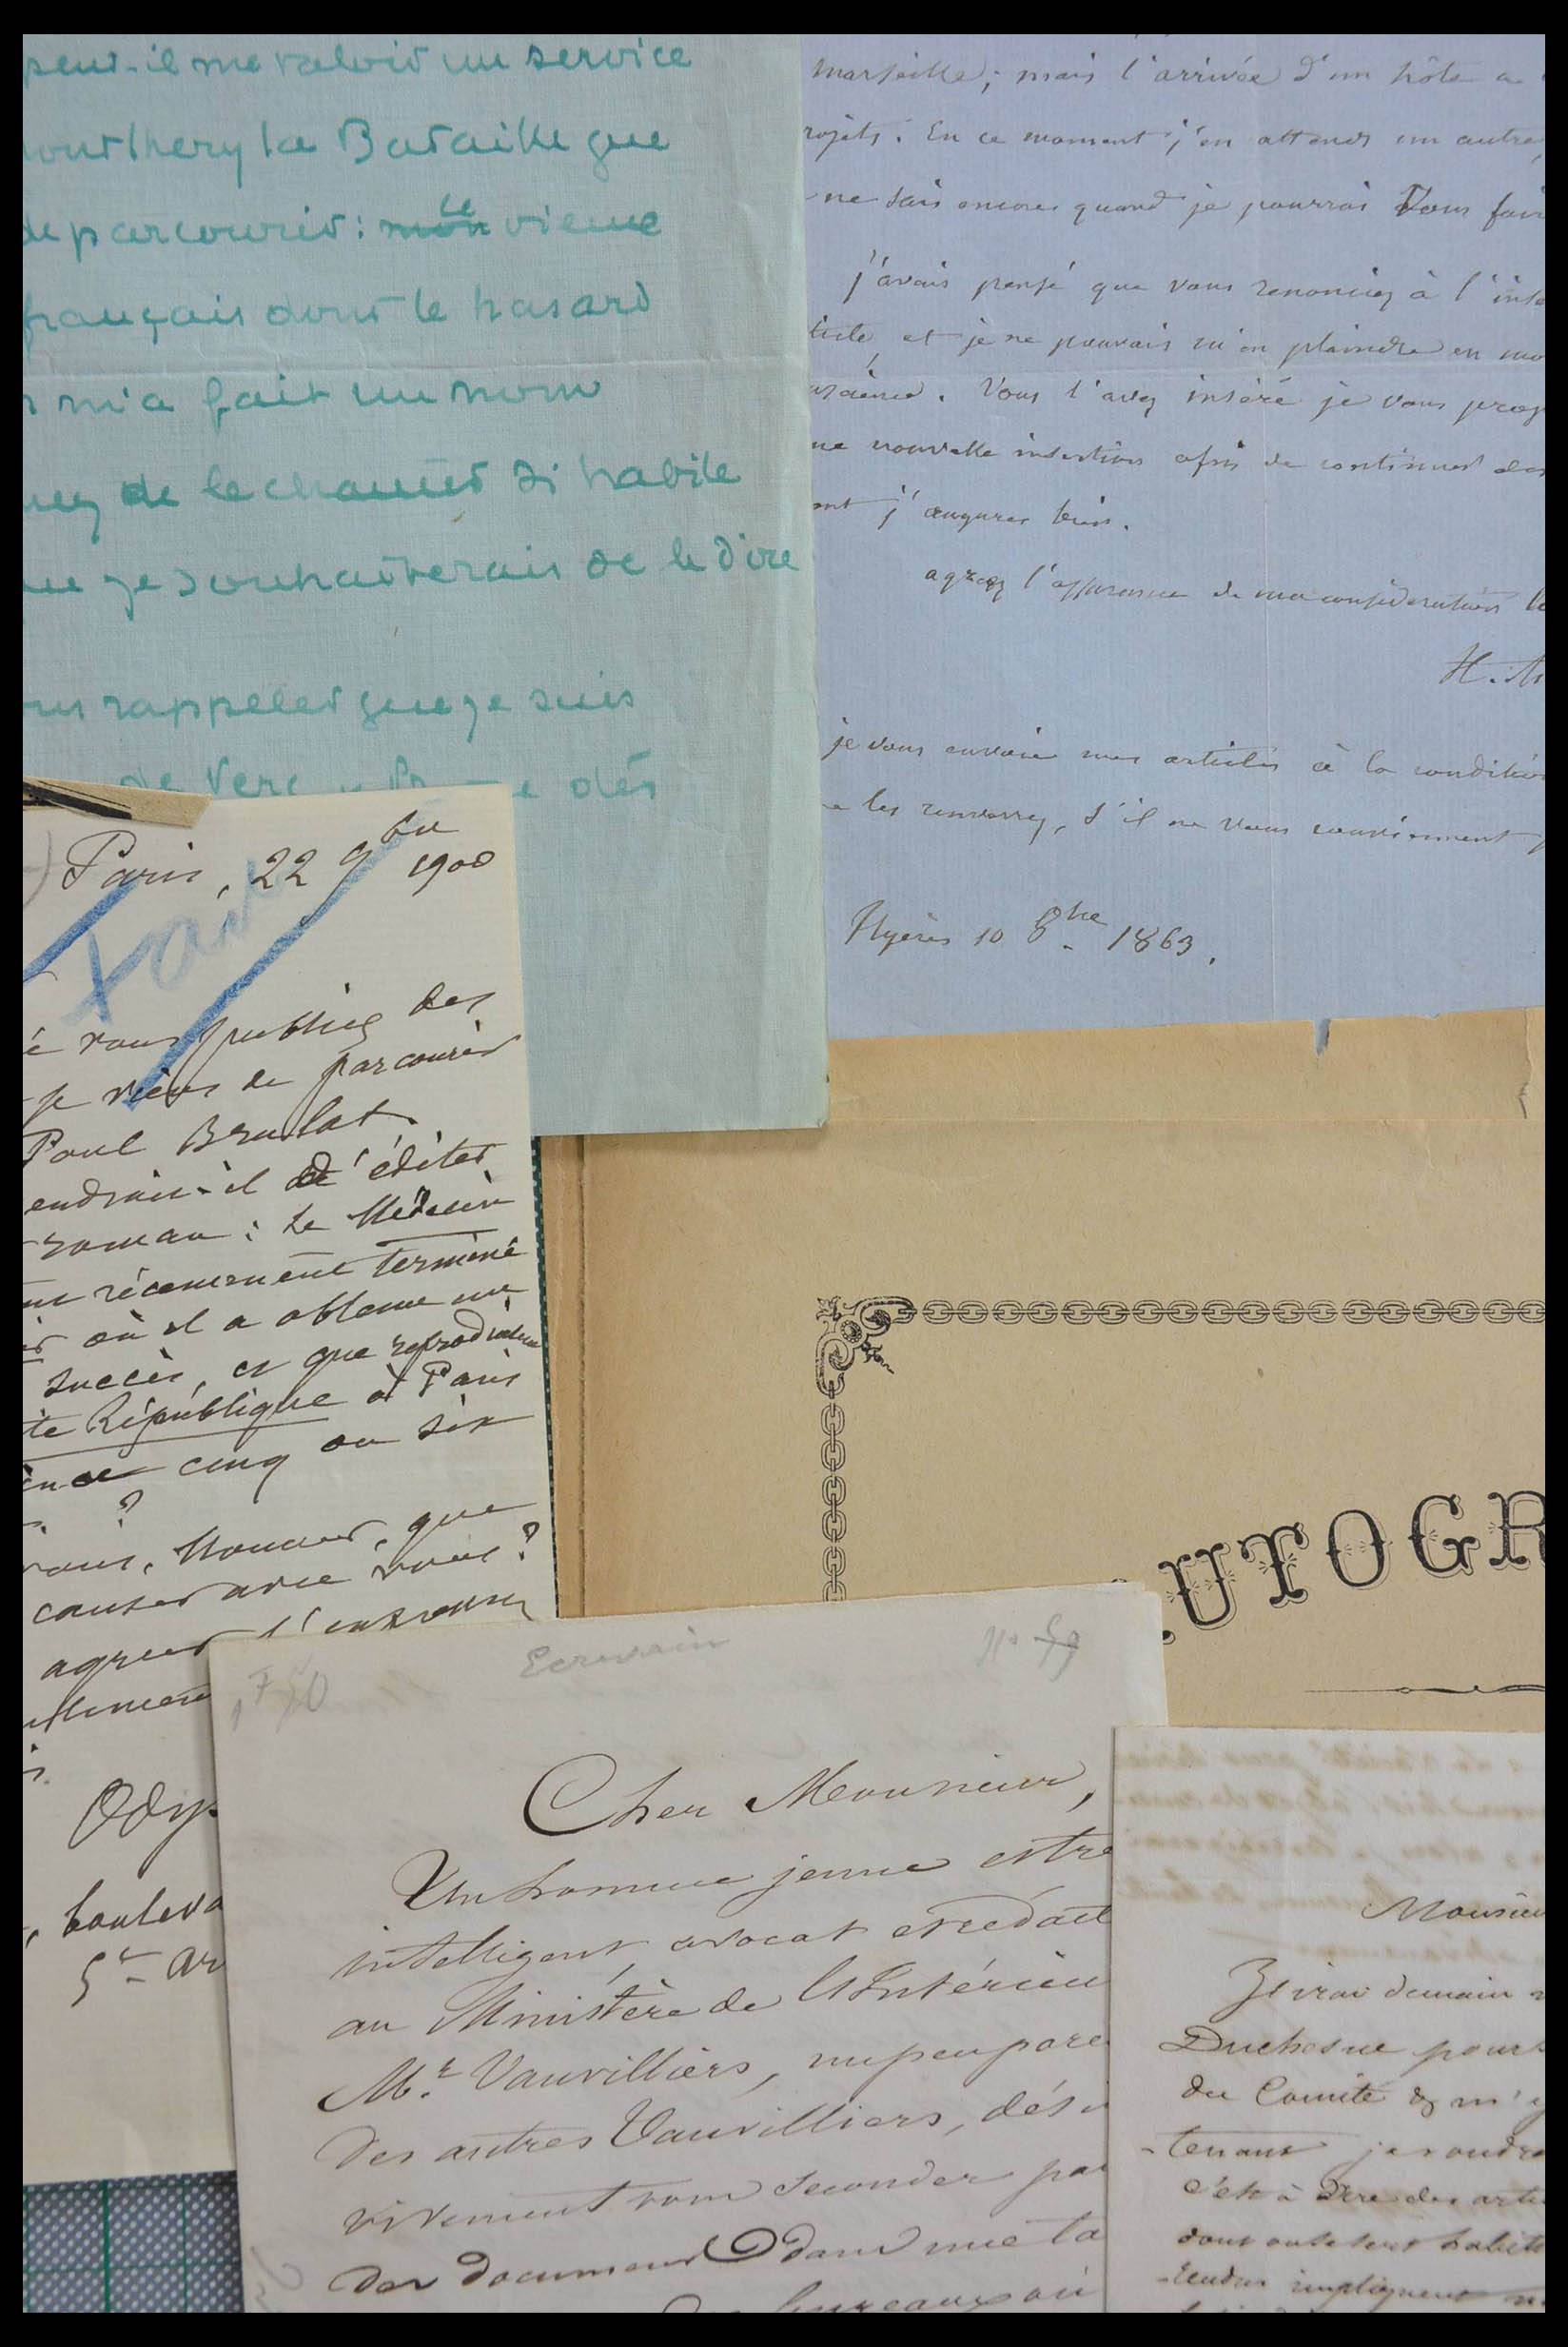 peut-il me valoir un service
la Bataille que
de parcourir : mon ce vieux
français dont le hasard
m'a fait un nom
de le chanter si habile
que je souhaiterais de le dire
rappeler que je suis
de dés
Marseille ; mais l'arrivée d'un hôte a
rojets. En ce moment j'en attends un autre,
ne sais encore quand je pourrai Vous fair
j'avais pensé que vous renonciez à l'inse
ticle, et je ne pouvais m'en plaindre en mo
Vous l'avez inséré je vous
ne nouvelle insertion afin de continuer des
ont j'augure bien.
agréez l'assurance de ma considération
H.
je vous envoie mes articles à la condition
les renverrez, s'il ne vous conviennent
Hyères 10 8bre 1863.
Paris, 22 9bre 1900
vous publiez des
je viens de parcourir
Paul Brulat.
endrait-il d'éditer
roman : Le Médecin
récemment terminé
où il a obtenu un
succès, et que reproduit
te République à Paris
cinq ou six
?
Monsieur, que
causer avec vous ?
agréer l'expression
Ody
, bouleva
5e ar
AUTOGR
Ecrivain
1F50
No
Cher Monsieur,
Un homme jeune et tre
intelligent, avocat et rédact
au Ministère de l'Intérieu
Mr. Vauvilliers, un peu pare
des autres Vauvilliers, dési
vivement vous seconder par
des documents dans une ta
bureaux où
Monsieu
J'irai demain
Duchesne pour
du Comité & m'
tenant je voudra
c'est à dire des arti
dont
rendus impliquent